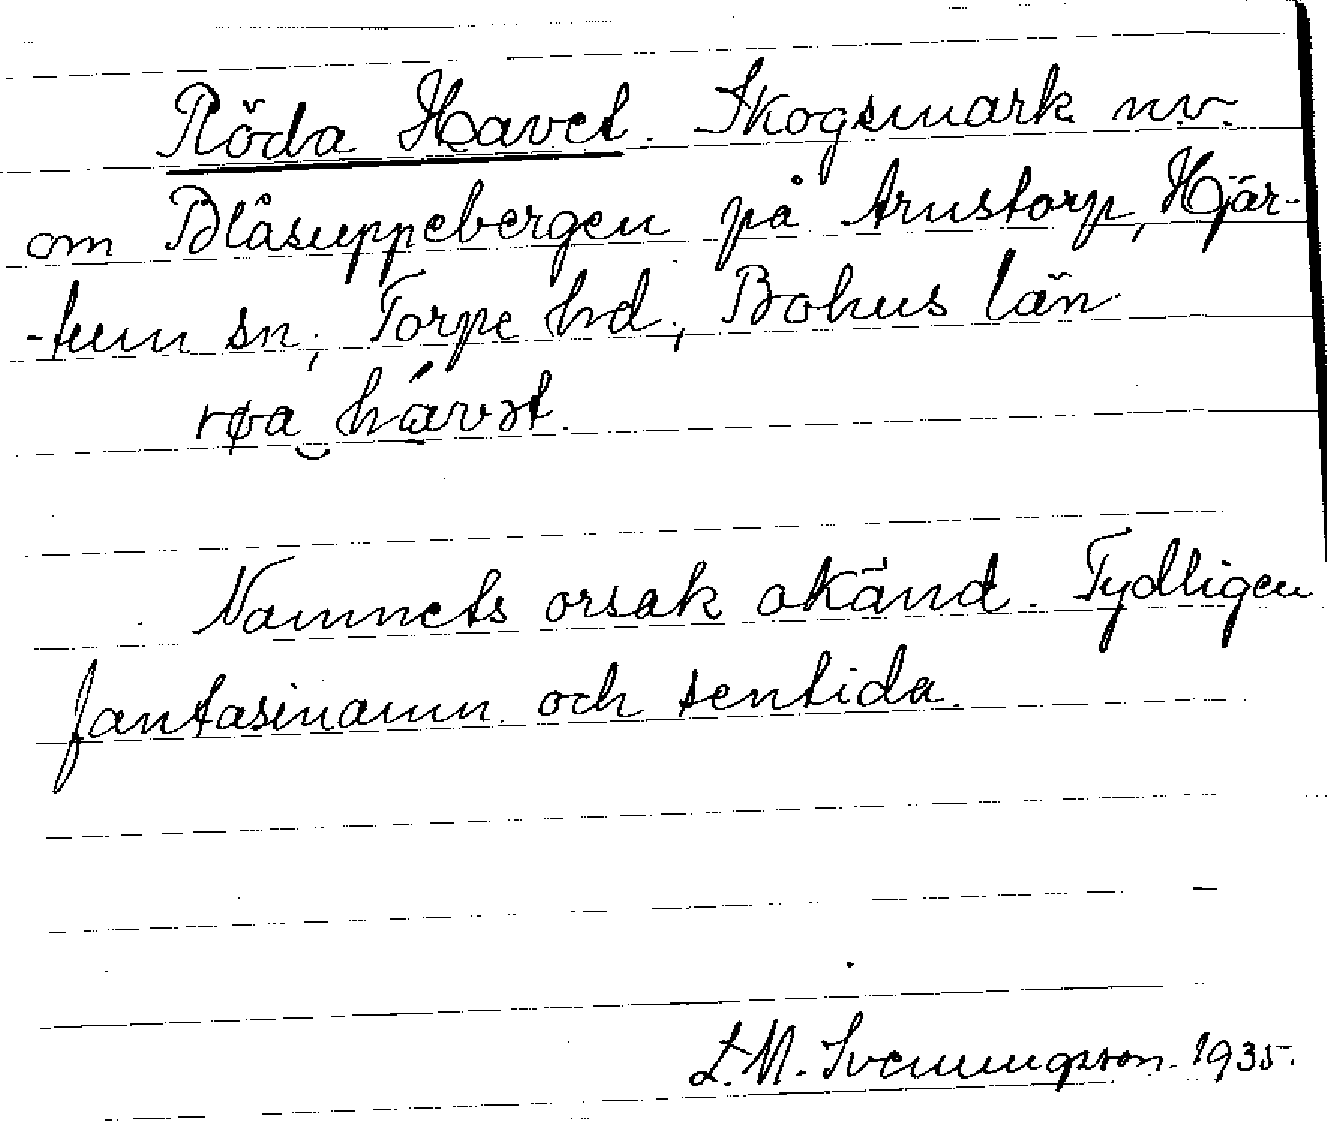 Röda Havet. Skogsmark nv.
om Blåsuppebergen på Arnstorp, Hjär-
-tum sn; Torpe hd; Bohus län
røa‿hávət.
Namnets orsak okänd. Tydligen
fantasinamn och sentida.
L. M. Svenungsson. 1935.